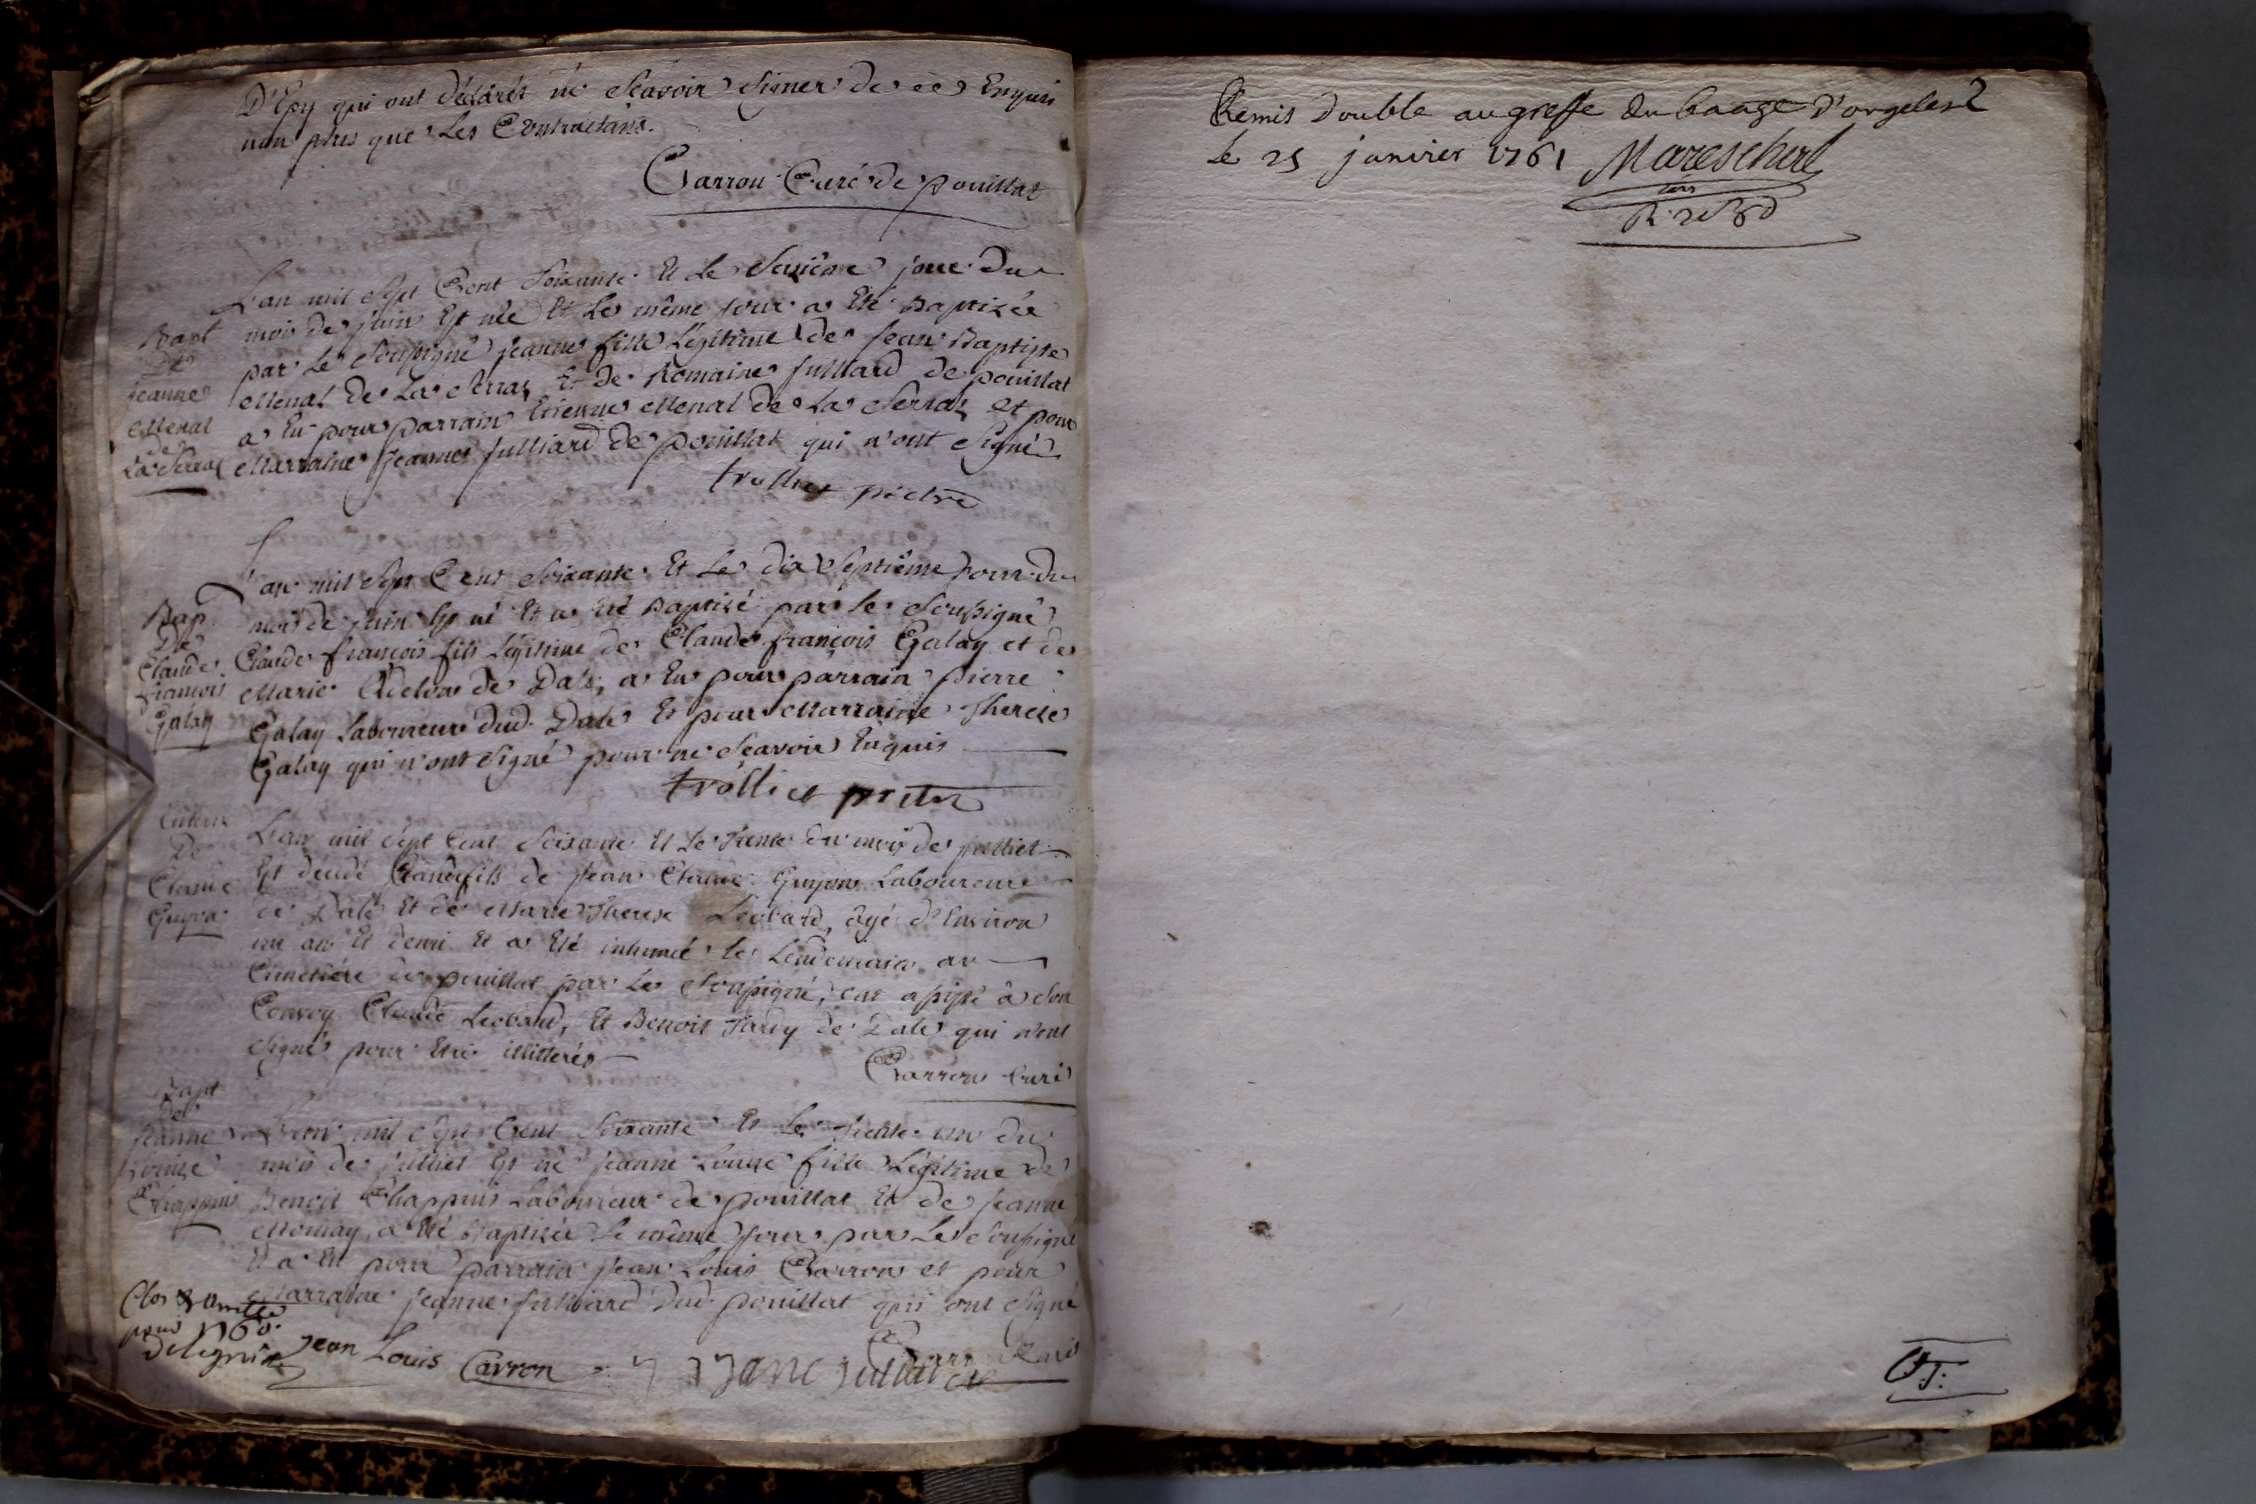 D'Epy qui ont déclarés ne Scavoir Signer de ce Enquis
non plus que Les Contractans.
Carron Curé de pouillat
L'an mil Sept Cent Soixante Et le Seizième jour du
mois de juin Est née Et Le même jour a Eté Baptizée
par Le Soussigné jeanne fille Légitime de jean Baptiste
Menal de La Serraz Et de Romaine julliard de pouillat
a Eu pour parrain Etienne Menal de La Serraz et pour
Marraine jeanne julliard de pouillat qui n'ont Signé
trolliet prêtre
Bapt
De
jeanne
Menal
de
La Serraz
L'an mil Sept Cent Soixante Et Le dix Septième jour du
mois de juin Est né Et a Eté Baptizé par le Soussigné
Claude françois fils Légitime de Claude françois Galay et de
Marie de Dale, a Eu pour parrain pierre
Galay Laboureur dud. Dale Et pour Marraine Therese
Galay qui n'ont Signé pour ne Scavoir Enquis
trolliet prêtre
Bap.
De
Claude
François
Galay
L'an mil Sept Cent Soixante Et Le Trente du mois de juilliet
Est décédé Claude fils de jean Claude Guyon Laboureur
de Dale Et de Marie Therese Léobard, âgé d'Environ
un an Et demi Et a Eté inhumé le Lendemain au
Cimetière de pouillat par Le Soussigné, ont assisté à Son
Convoy Claude Leobard, Et Benoit Tardy de Dale qui n'ont
Signé pour Etre illitterés
Carron Curé
De
Claude
Guyon
L'an mil Sept Cent Soixante Et Le trente un du
mois de juilliet Est né jeanne Louise fille Légitime de
Benoit Chappuis Laboureur de pouillat Et de jeanne
a Eté Baptizée Le même jour par Le Soussigné
Et a Eu pour parrain jean Louis Carron et pour
Marraine jeanne julliard dud. pouillat qui ont Signé
Bapt
de
jeanne
Louise
Chappuis
Clos
pour 1760.
Jean Louis Carron
Carron Curé
Remis double au greffe du d'orgelet
le 25 janvier 1761 Mareschal